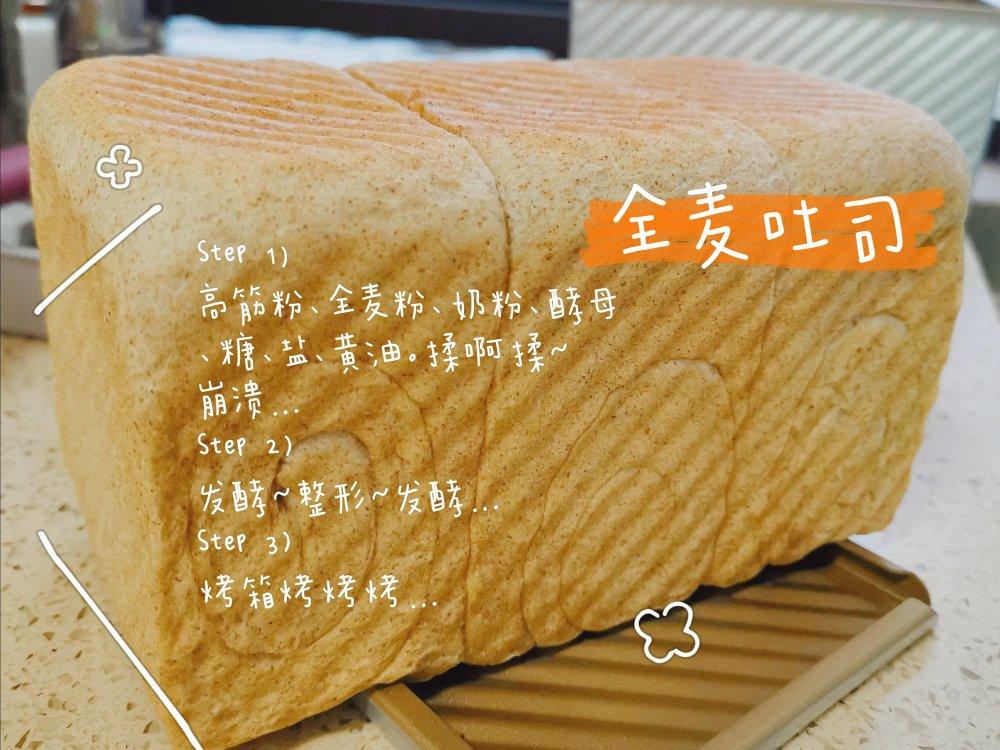 全麦吐司
Step 1)
高筋粉、全麦粉、奶粉、酵母
、糖、盐、黄油。揉啊揉~
崩溃...
Step 2)
发酵~整形~发酵...
Step 3)
烤箱烤烤烤...